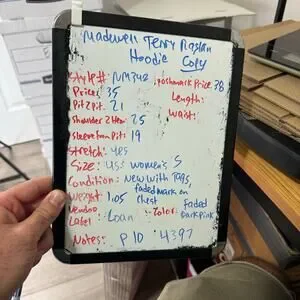 Madewell Terry Raglan
Hoodie Copy
Style#: NM342 Poshmark Price: 38
Price: 35 Length:
Pit 2 Pit: 21 Waist:
Shoulder 2 Hem: 25
Sleeve from Pit: 19
Stretch: yes
Size: uss women's S
Condition: New with Tags
faded mark on
chest
Weight: 1.05
Vendor
Label: Loan Color: Faded
Dark Pink
Notes: P10 4397